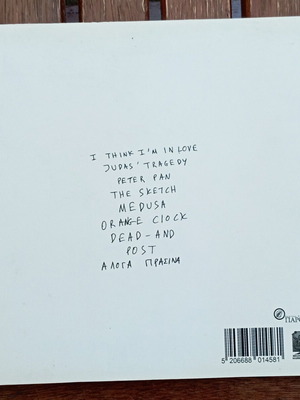 I THINK I'M IN LOVE
JUDAS' TRAGEDY
PETER PAN
THE SKETCH
MEDUSA
ORANGE CLOCK
DEAD-AND
POST
ΑΛΟΓΑ ΠΡΑΣΙΝΑ
5 206688 014581